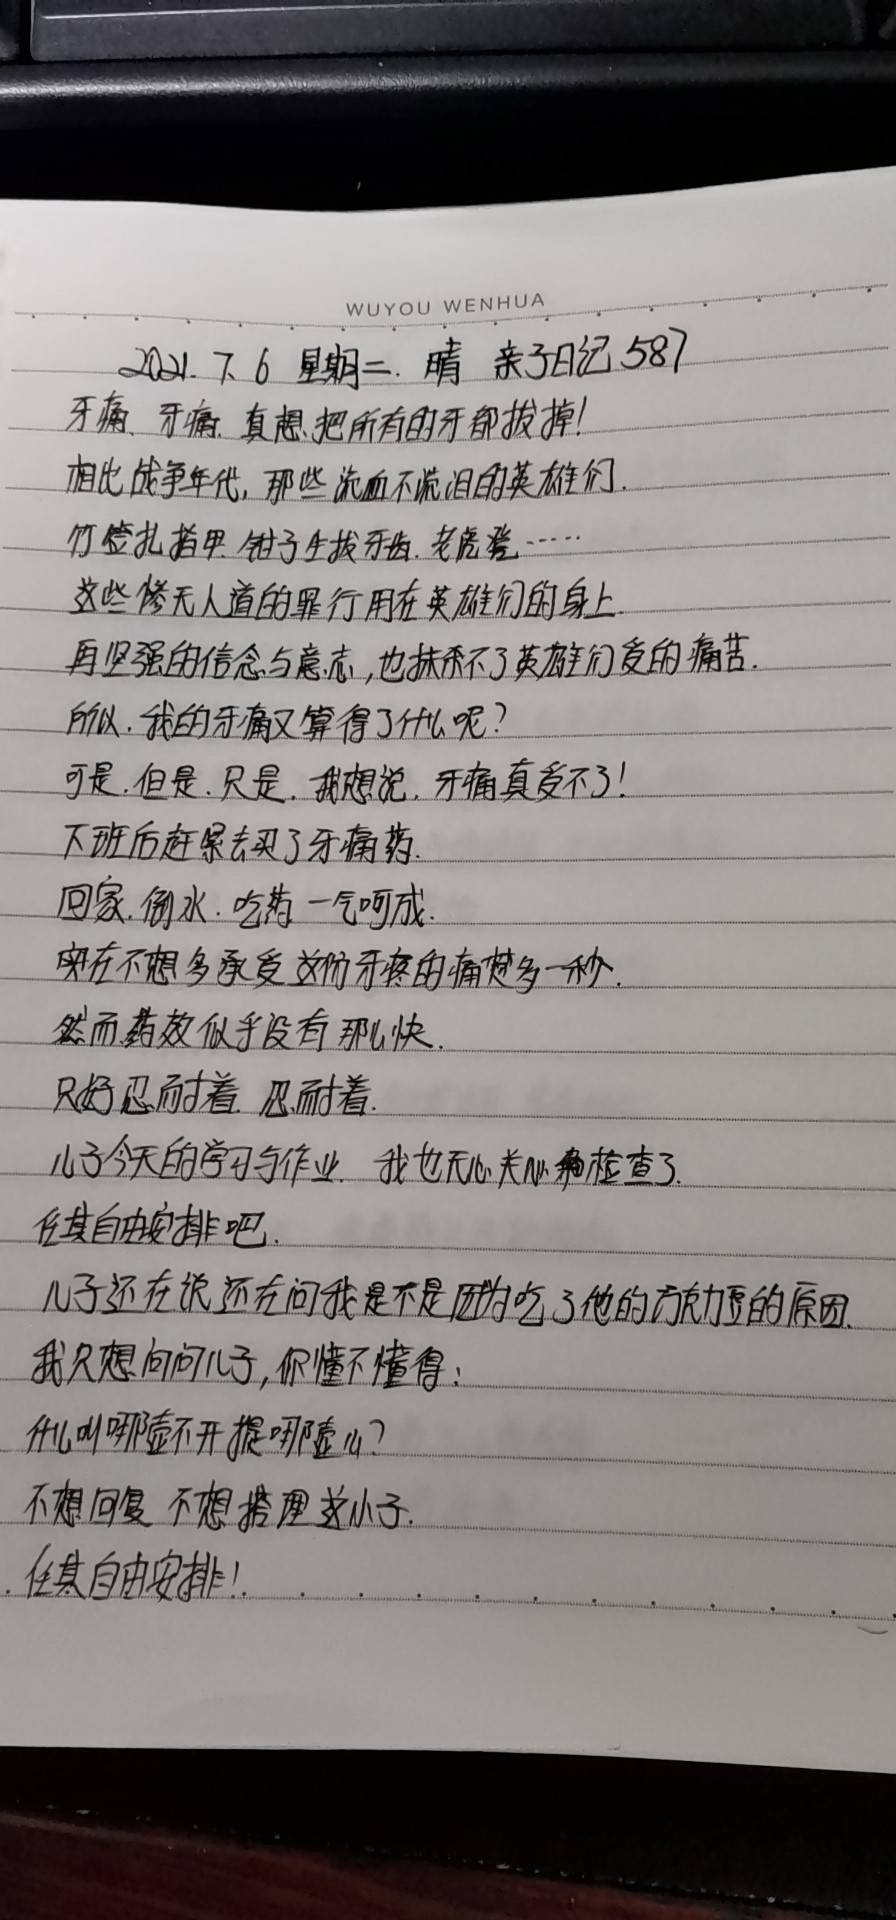 WUYOU WENHUA
2021.7.6 星期二. 晴 亲子日记587
牙痛、牙痛.真想把所有的牙都拔掉!
相比战争年代,那些流血不流泪的英雄们.
竹签扎指甲.钳子生拔牙齿.老虎凳……
这些惨无人道的罪行用在英雄们的身上.
再坚强的信念与意志,也抹杀不了英雄们受的痛苦.
所以.我的牙痛又算得了什么呢?
可是.但是.只是.我想说.牙痛真受不了!
下班后赶紧去买了牙痛药.
回家.倒水.吃药一气呵成.
实在不想多承受这份牙疼的痛楚多一秒.
然而药效似乎没有那么快.
只好忍耐着.忍耐着.
儿子今天的学习与作业.我也无心关心检查了.
任其自由安排吧.
儿子还在说还在问我是不是因为吃了他的巧克力豆的原因.
我只想问问儿子,你懂不懂得:
什么叫哪壶不开提哪壶么?
不想回复 不想搭理这小子.
任其自由安排!